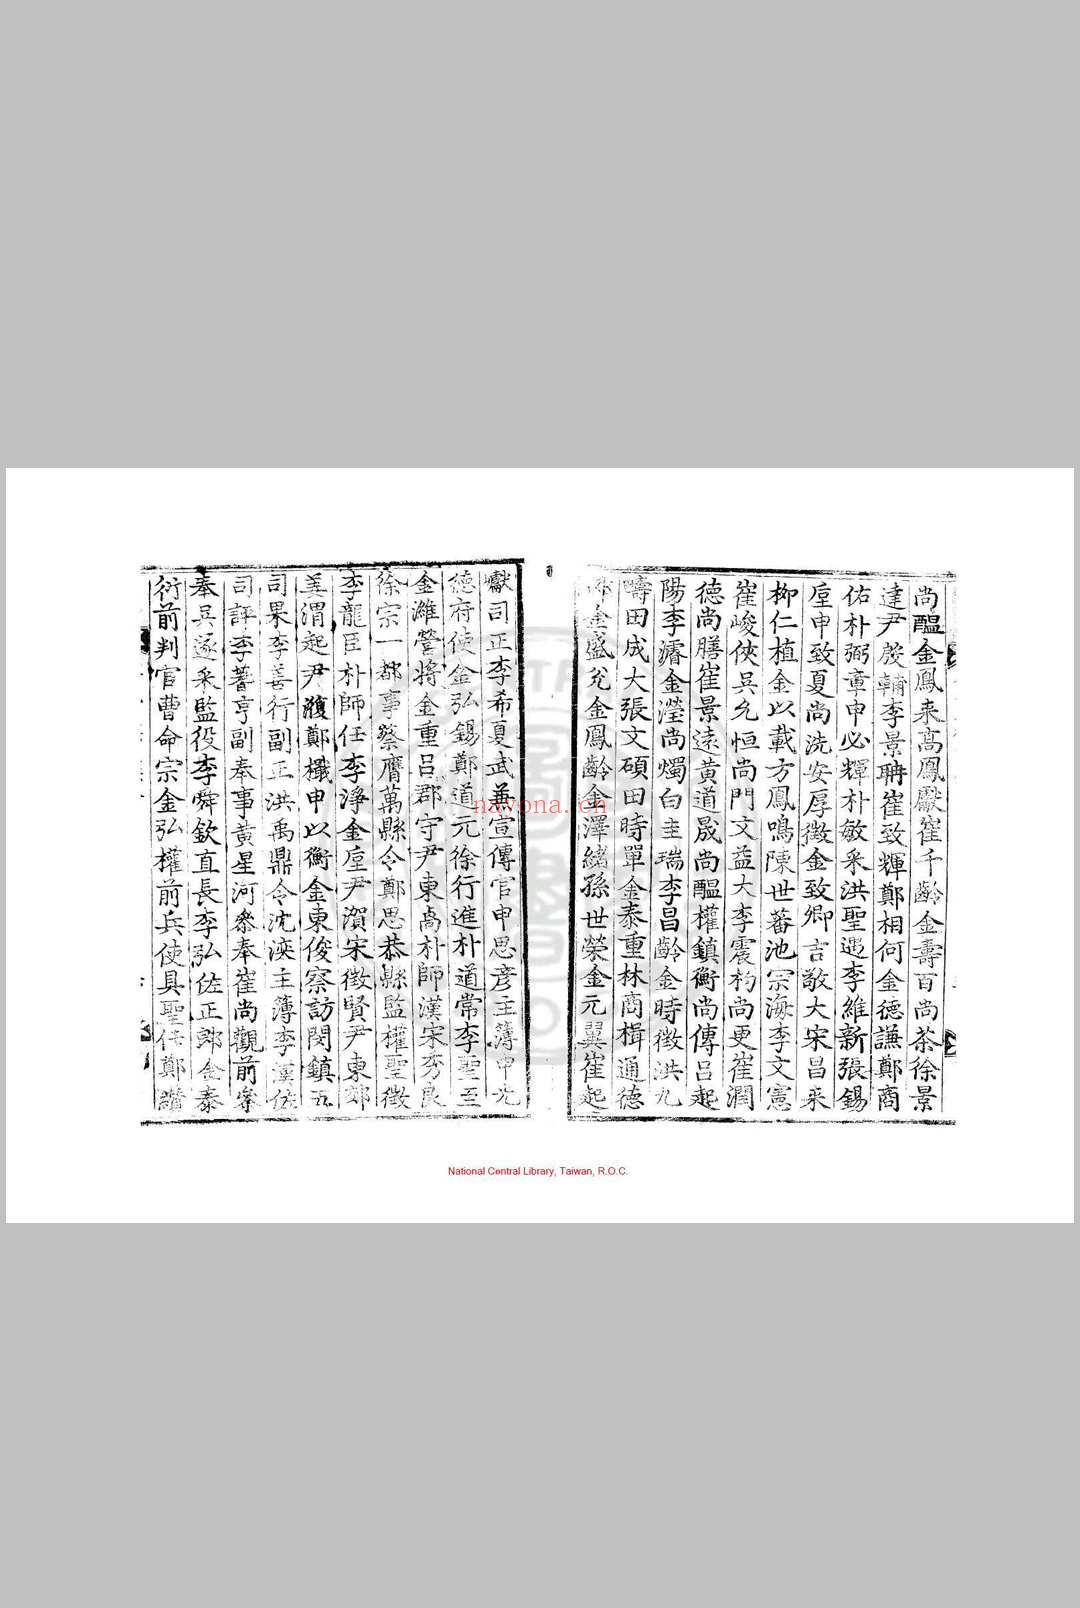 尚醞金鳳来高鳳獻崔千齡金壽百尚茶徐景
達尹殷輔李景聃崔致輝鄭相何金德謙鄭商
佑朴弼章申必輝朴敏采洪聖遇李維新張錫
垕申致夏尚洗安厚徵金致卿吉敬大宋昌采
柳仁植金以載方鳳鳴陳世蕃池宗海李文憲
崔峻俠吳允恒尚門文益大李震杓尚更崔潤
德尚膳崔景遠黄道晟尚醞權鎮衡尚傳吕起
陽李濬金瀅尚燭白圭瑞李昌齡金時徵洪九
疇田成大張文碩田時單金泰重林商楫通德
郎金盛兊金鳳齡金澤緒孫世榮金元翼崔起
獻司正李希夏武兼宣傳官申思彦主簿申光
德府使金弘錫鄭道元徐行進朴道常李聖至
金濰營將金重吕郡守尹東卨朴師漢宋秀良
徐宗一都事蔡膺萬縣令鄭思恭縣監權聖徵
李龍臣朴師任李淨金垕尹濵宋徵賢尹東郊
姜渭起尹濩鄭檝申以衡金東俊察訪閔鎮五
司果李善行副正洪禹鼎令沈浹主簿李漢佐
司評李蓍亨副奉事黄星河叅奉崔尚觀前寧
奉吳遂采監役李舜欽直長李弘佐正郎金泰
衍前判官曹命宗金弘權前兵使具聖任鄭纘
navona.cn
National Central Library, Taiwan, R.O.C.